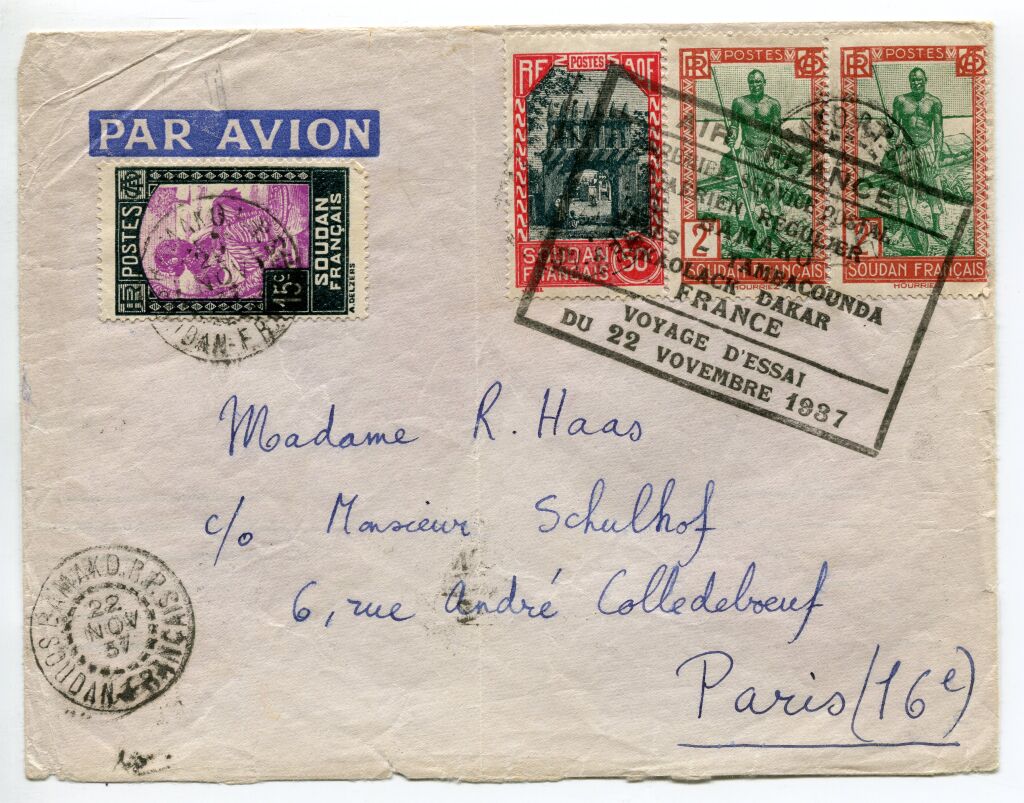 PAR AVION
POSTES
SOUDAN FRANÇAIS
15c
A. DELZERS
RF POSTES AOF
SOUDAN FRANÇAIS
50c
RF POSTES
2F
SOUDAN FRANÇAIS
HOURRIEZ
RF POSTES
2F
SOUDAN FRANÇAIS
HOURRIEZ
AIR FRANCE
PREMIER SERVICE POSTAL
AERIEN REGULIER
BAMAKO
KAYES - TAMBACOUNDA
KAOLACK DAKAR
FRANCE
VOYAGE D'ESSAI
DU 22 VOVEMBRE 1937
Madame R. Haas
c/o Monsieur Schulhof
6, rue André Colledebœuf
Paris (16e)
BAMAKO.R.P.
22
NOV
37
SOUDAN-FRANÇAIS